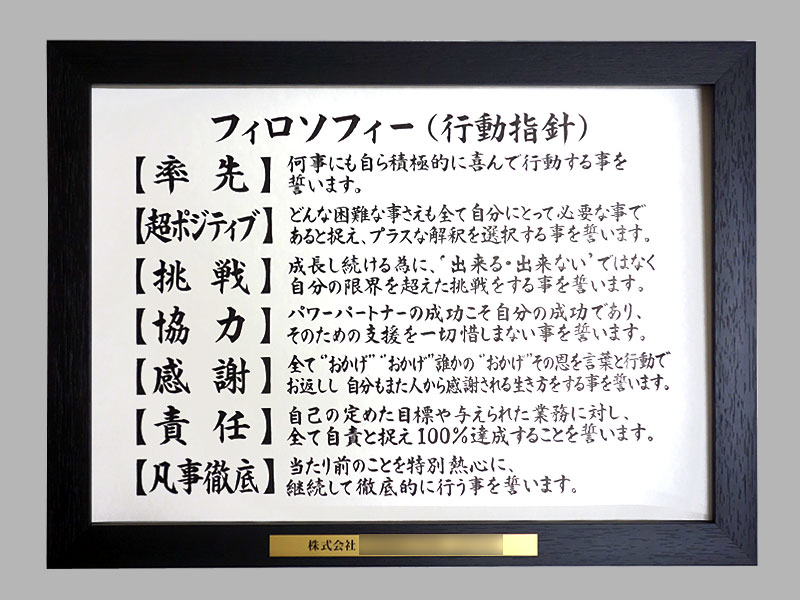 フィロソフィー（行動指針）
【率先】何事にも自ら積極的に喜んで行動する事を
誓います。
【超ポジティブ】どんな困難な事さえも全て自分にとって必要な事で
あると捉え、プラスな解釈を選択する事を誓います。
【挑戦】成長し続ける為に、‘出来る・出来ない’ではなく
自分の限界を超えた挑戦をする事を誓います。
【協力】パワーパートナーの成功こそ自分の成功であり、
そのための支援を一切惜しまない事を誓います。
【感謝】全て“おかげ”“おかげ”誰かの“おかげ”その恩を言葉と行動で
お返しし 自分もまた人から感謝される生き方をする事を誓います。
【責任】自己の定めた目標や与えられた業務に対し、
全て自責と捉え100%達成することを誓います。
【凡事徹底】当たり前のことを特別熱心に、
継続して徹底的に行う事を誓います。
株式会社